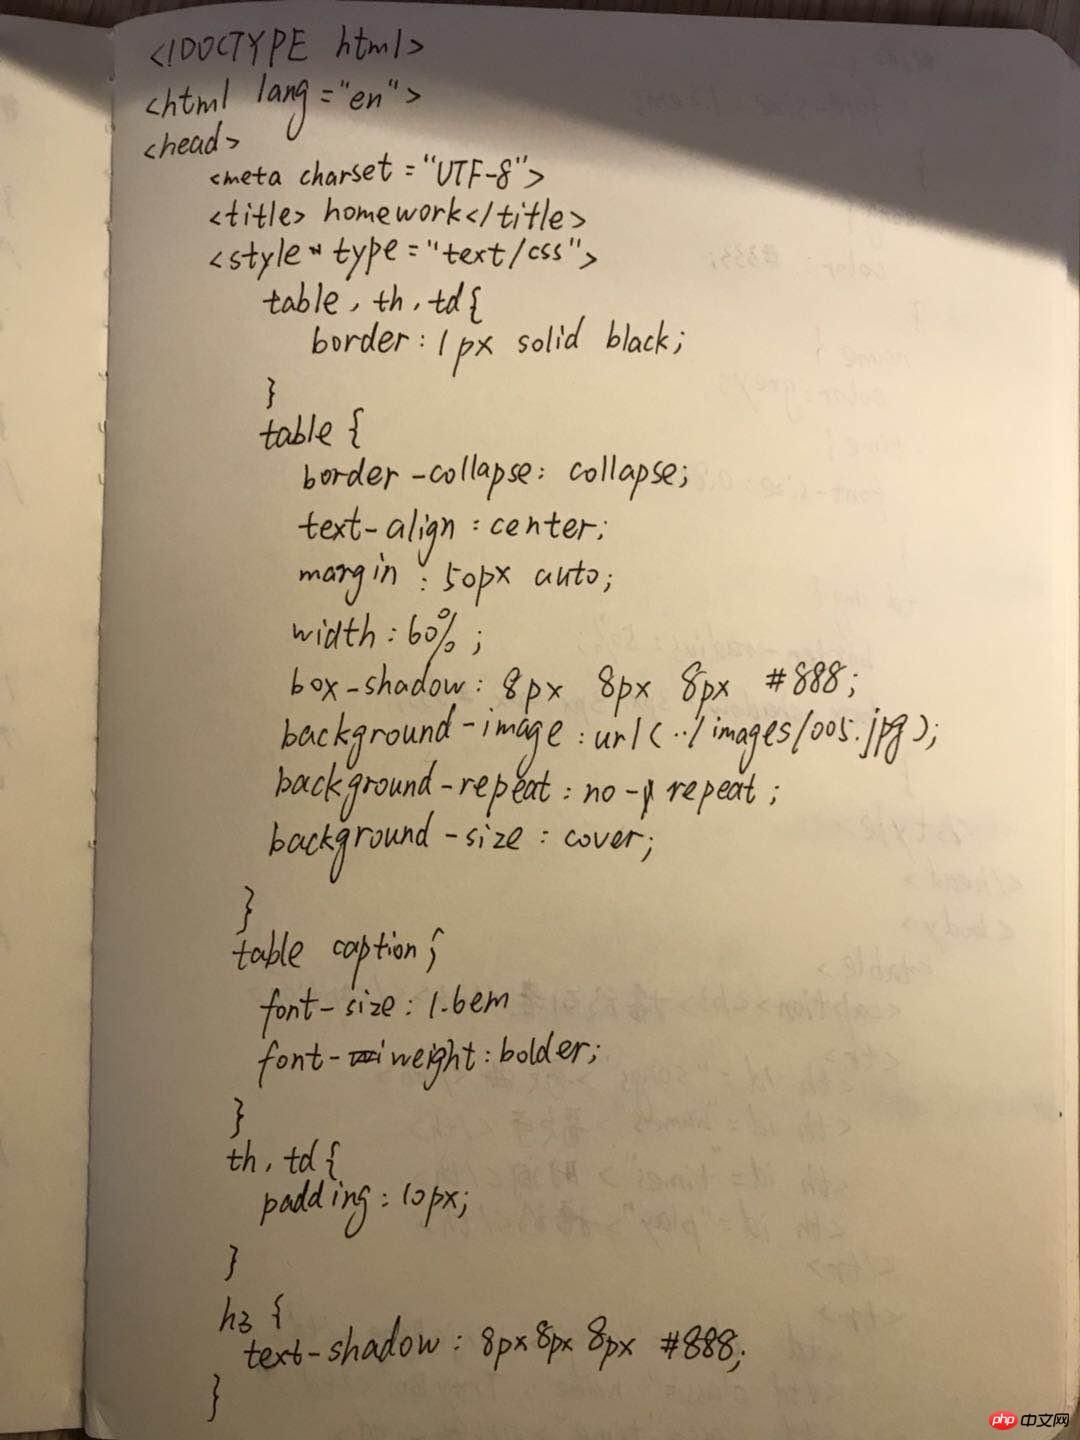 <!DOCTYPE html>
<html lang="en">
<head>
<meta charset="UTF-8">
<title> homework</title>
<style type="text/css">
table, th, td{
border: 1px solid black;
}
table {
border-collapse: collapse;
text-align: center;
margin: 50px auto;
width: 60%;
box-shadow: 8px 8px 8px #888;
background-image: url(../images/005.jpg);
background-repeat: no-repeat;
background-size: cover;
}
table caption{
font-size: 1.6em
font-weight: bolder;
}
th, td{
padding: 10px;
}
h3 {
text-shadow: 8px 8px 8px #888;
}
php 中文网